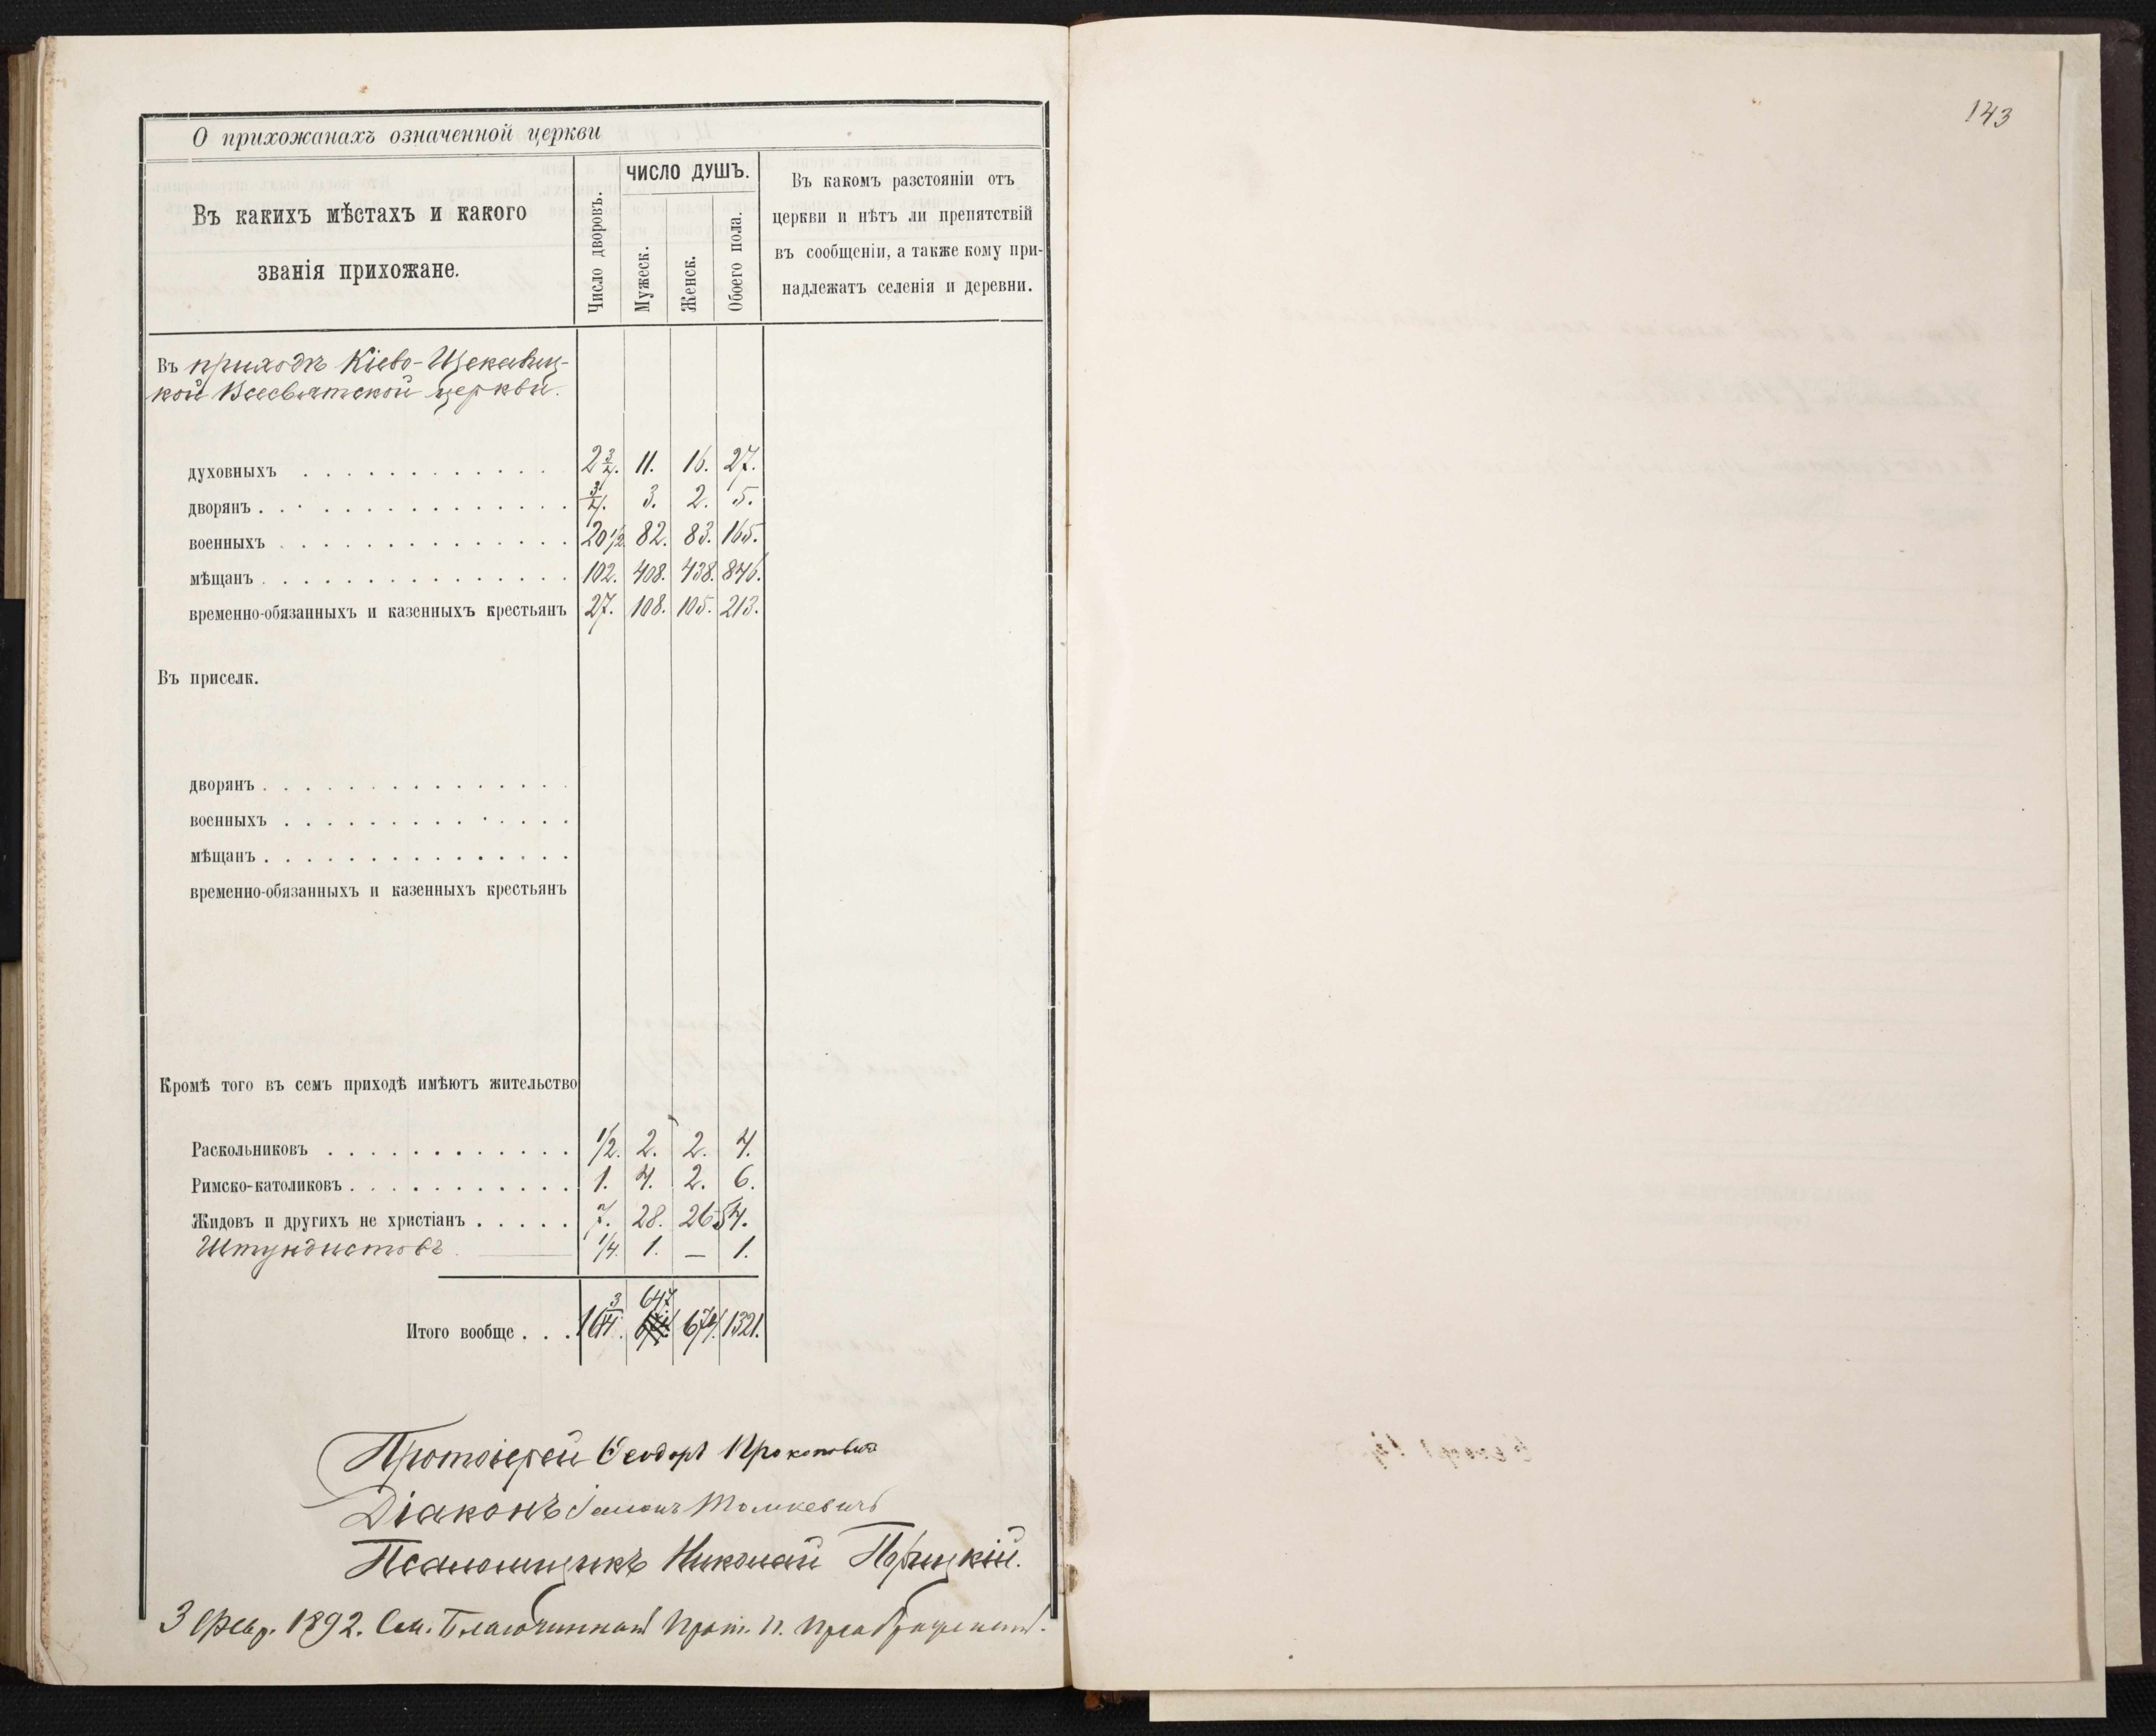 О прихожанахъ означенной церкви
Въ какихъ мѣстахъ и какого
званія прихожане.
Число дворовъ.
ЧИСЛО ДУШЪ.
Мужеск.
Женск.
Обоего пола.
Въ какомъ разстояніи отъ
церкви и нѣтъ ли препятствій
въ сообщеніи, а также кому при-
надлежатъ селенія и деревни.
Въ приходѣ Кіево-Щекавиц-
кой Всесвятской церкви.
духовныхъ . . . . . . . . . . . . 2 3/4. 11. 16. 27.
дворянъ . . . . . . . . . . . . . . . 3/4. 3. 2. 5.
военныхъ . . . . . . . . . . . . . . 20 1/2 82. 83. 165.
мѣщанъ . . . . . . . . . . . . . . . 102. 408. 438. 846.
временно-обязанныхъ и казенныхъ крестьянъ 27. 108. 105. 213.
Въ приселк.
дворянъ . . . . . . . . . . . . . . .
военныхъ . . . . . . . . . . . . . .
мѣщанъ . . . . . . . . . . . . . . .
временно-обязанныхъ и казенныхъ крестьянъ
Кромѣ того въ семъ приходѣ имѣютъ жительство
Раскольниковъ . . . . . . . . . . . . 1/2. 2. 2. 4.
Римско-католиковъ . . . . . . . . . . . 1. 4. 2. 6.
Жидовъ и другихъ не христіанъ . . . . . 7. 28. 26 54.
Штундистовъ 1/4. 1. — 1.
Итого вообще . . . 647 674. 1321.
Протоіерей Ѳеодоръ Прокоповичъ
Діаконъ Томкевичъ
Псаломщикъ Николай
3 Февр. 1892. См. Благочинный Прот. П. Преображенскій.
143